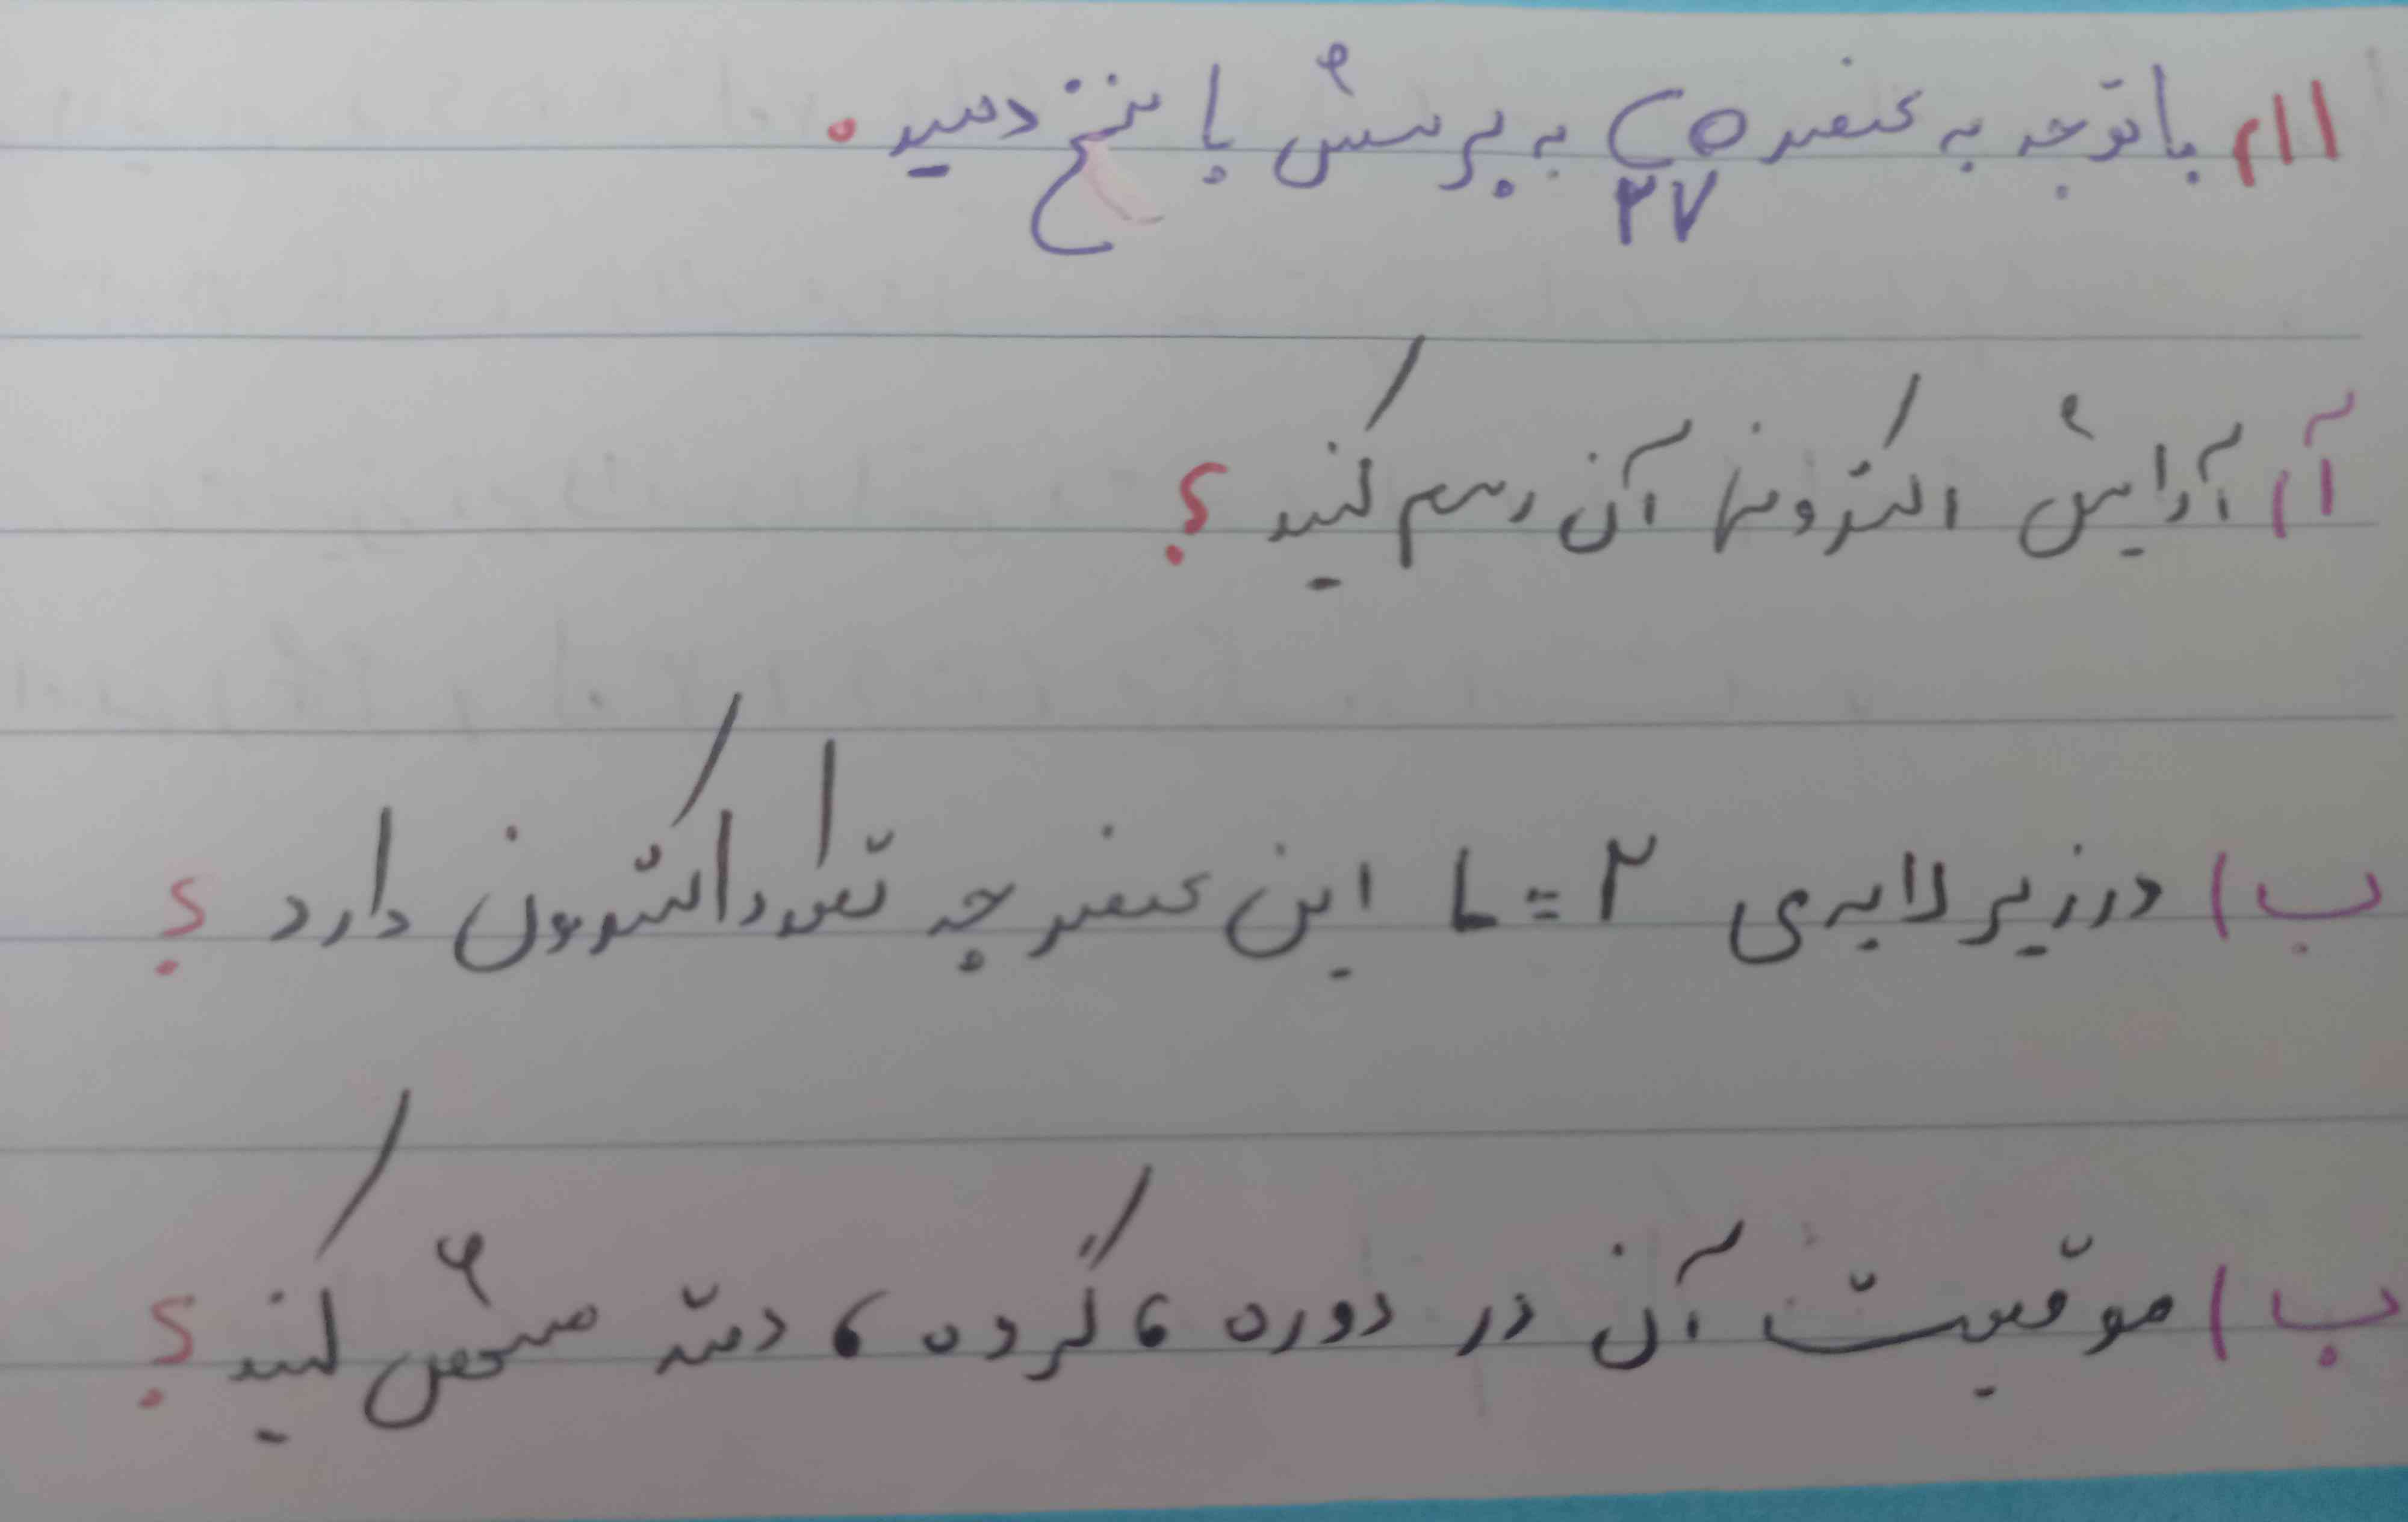 ۱۱) با توجه به عنصر Co ۲۷ به پرسش پاسخ دهید.
آ) آرایش الکترونی آن رسم کنید؟
ب) در زیر لایه‌ی L=۲ این عنصر چه تعداد الکترون دارد؟
پ) موقعیت آن در دوره، گروه، دسته مشخص کنید؟